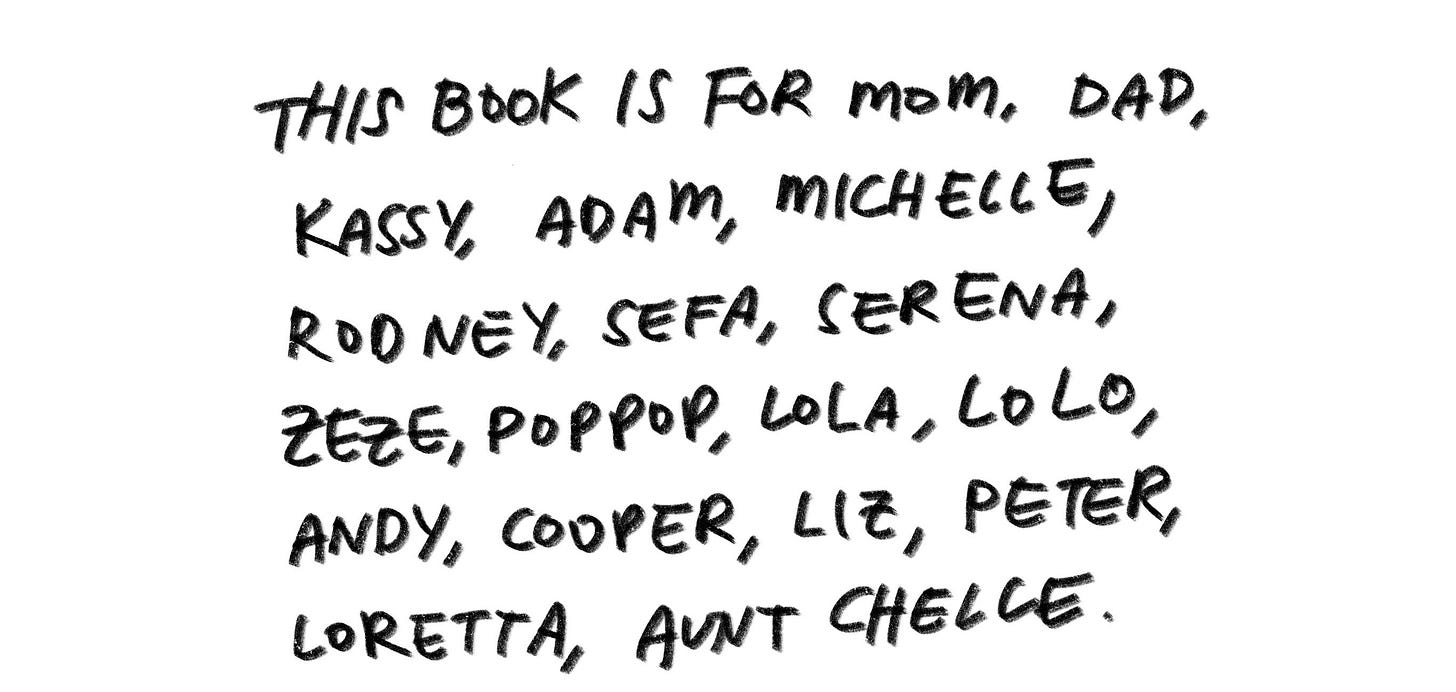 THIS BOOK IS FOR MOM, DAD,
KASSY, ADAM, MICHELLE,
RODNEY, SEFA, SERENA,
ZEZE, POPPOP, LOLA, LOLO,
ANDY, COOPER, LIZ, PETER,
LORETTA, AUNT CHELLE.